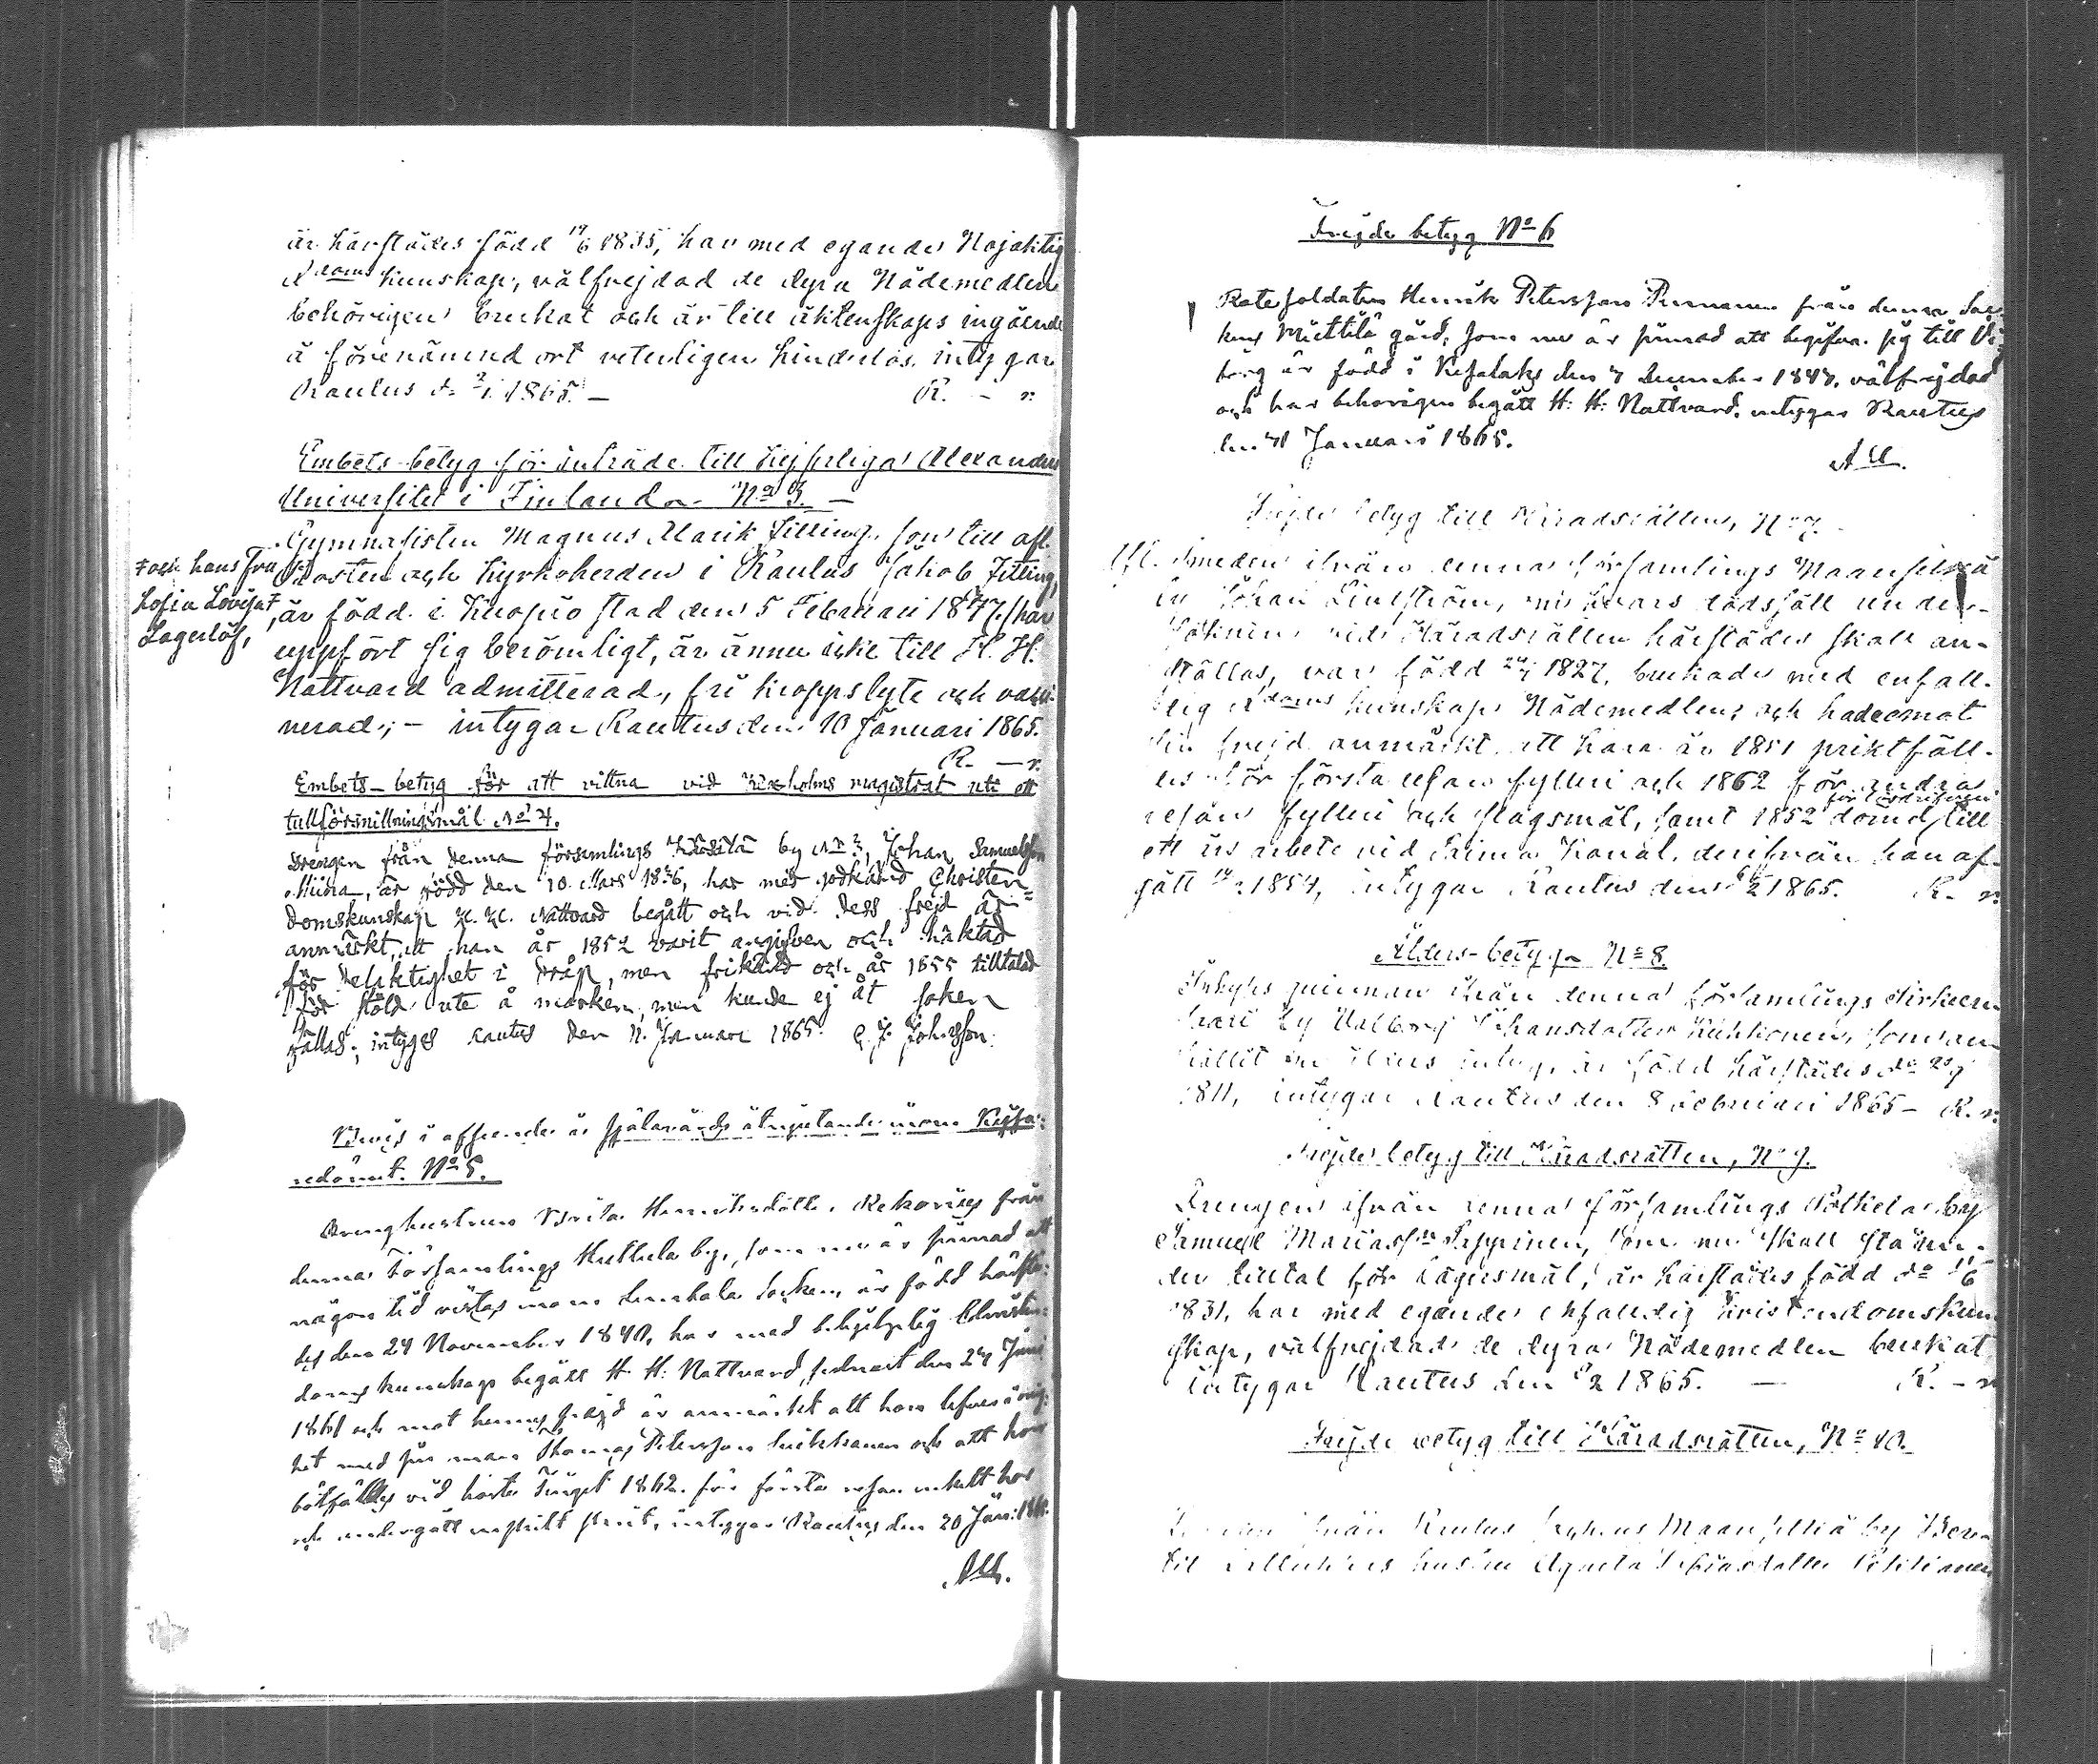 är härstädes född 17/6 1835, har med egande Nojaktig
Xdoms kunskap, välfrejdad de dyra Nådemedlen
behörigen brukat och är till äktenskaps ingående
å förenämnd ort veterligen hinderlös, intygar
Rautus d. 7/1 1865. — R. — n.
Embets-betyg för inträde till Kejserliga Alexanders
Universitet i Finland. No 3. —
Gymnasisten Magnus Alarik Zitting, son till afl.
Prosten och Kyrkoherden i Rautus Jakob Zitting,
Ŧ och hans fru
Sofia Lovisa
Lagerlöf,
är född i Kuopio stad den 5 Februari 1847, har
uppfört sig berömligt, är ännu icke till H. H.
Nattvard admitterad, fri kroppslyte och vacci-
nerad; — intygar Rautus den 10 Januari 1865.
R. — n.
Embets-betyg för att vittna vid Kexholms magistrat uti ett
tullförsnillningsmål No 4.
Drengen från denna församlings by No 3, Johan Samuelsson
Miina, är född den 10 Mars 1836, har med godkänd Christen-
domskunskap H. H. Nattvard begått och vid dess frejd är
anmärkt, att han år 1852 varit angifven och häktad
för delaktighet i dråp, men frikänd och år 1855 tilltalad
för stöld ute å marken, men kunde ej åt saken
fällas; intyges Rautus den 11 Januari 1865. C. J. Johnsson.
Bevis i afseende å själavårds åtnjutande inom Kejsa-
redömet. No 5.
Drenghustrun Brita Henriksdotter från
denna Församlings Huttula by, som nu är sinnad att
någon tid vistas inom Lembala Socken, är född härstä-
des den 24 November 1840, har med behjelplig Christen-
doms kunskap begått H. H. Nattvard, sednast den 24 Juni
1861 och mot hennes frejd är anmärkt att hon
het med sin man Thomas Petersson och att hon
bötfälldes vid höste Tinget 1862 för första resan enkelt hor
och undergått enskilt skrift, intygar Rautus den 20 Jan. 1865.
AU.
Frejde betyg No 6
Rotesoldaten Henrik Petersson från denna Soc-
kens Miettilä gård, som nu är sinnad att begifva sig till Wi-
borg är född i Kesälaks den 7 December 1847, välfrejdad
och har behörigen begått H. H. Nattvard, intygar Rautus
den 31 Januari 1865.
AU.
Frejde betyg till Häradsrätten, No 7.
Afl. Smeden ifrån denna församlings Maanselkä
by Johan Lindström, om hvars dödsfäll under-
sökning vid Häradsrätten härstädes skall an-
ställas, var född 1827, brukade med enfall-
dig Xdoms kunskap Nådemedlen, och hade emot
sin frejd anmärkt att hava år 1851 pliktfäll-
es för första resan fylleri och 1862 för andra
resan fylleri och slagsmål, samt 1852 dömd till
för lösdrifveri
ett års arbete vid Saima Kanal, derifrån han af-
gått 1854, intygar Rautus den 1865. R. n.
Ålders-betyg No 8.
Inhyses qvinnan ifrån denna församlings
by Valborg Johansdotter, som an-
hållit om ålders intyg, är född härstädes
1811, intygar Rautus den 8 Februari 1865 — R. n.
Frejde betyg till Häradsrätten, No 9.
Drengen ifrån denna församlings by
Samuel Mariasson, som nu skall stå un-
der tilltal för Lägersmål, är härstädes född
1831, har med egande enfalldig Kristendomskun-
skap, välfrejdad de dyra Nådemedlen brukat
intygar Rautus den 1865. — R. — n
Frejde betyg till Häradsrätten, No 10.
från Rautus Sockens Maanselkä by
hustru Agneta